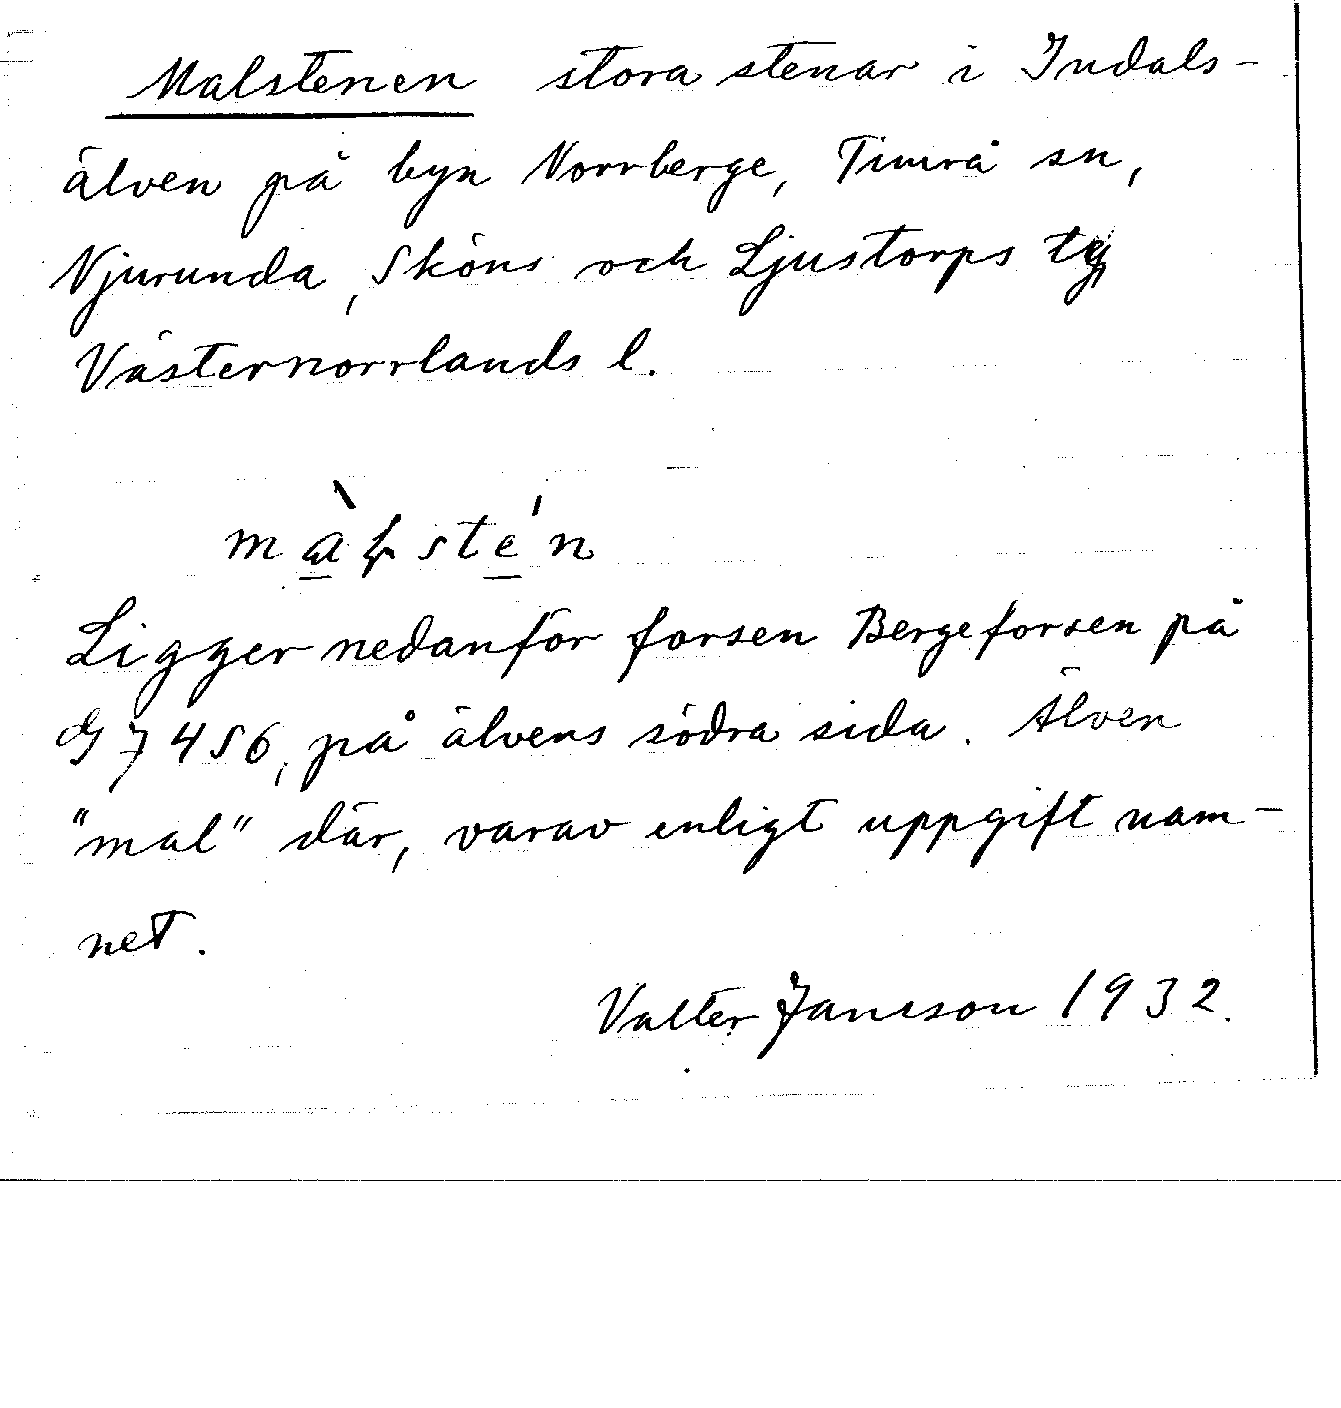 Malstenen stora stenar i Indals-
älven på byn Norrberge, Timrå sn,
Njurunda, Sköns och Ljustorps tg
Västernorrlands l.
màlsté n
Ligger nedanför forsen Bergeforsen på
7456, på älvens södra sida. Älven
"mal" där, varav enligt uppgift nam-
net.
Valter Jansson 1932.